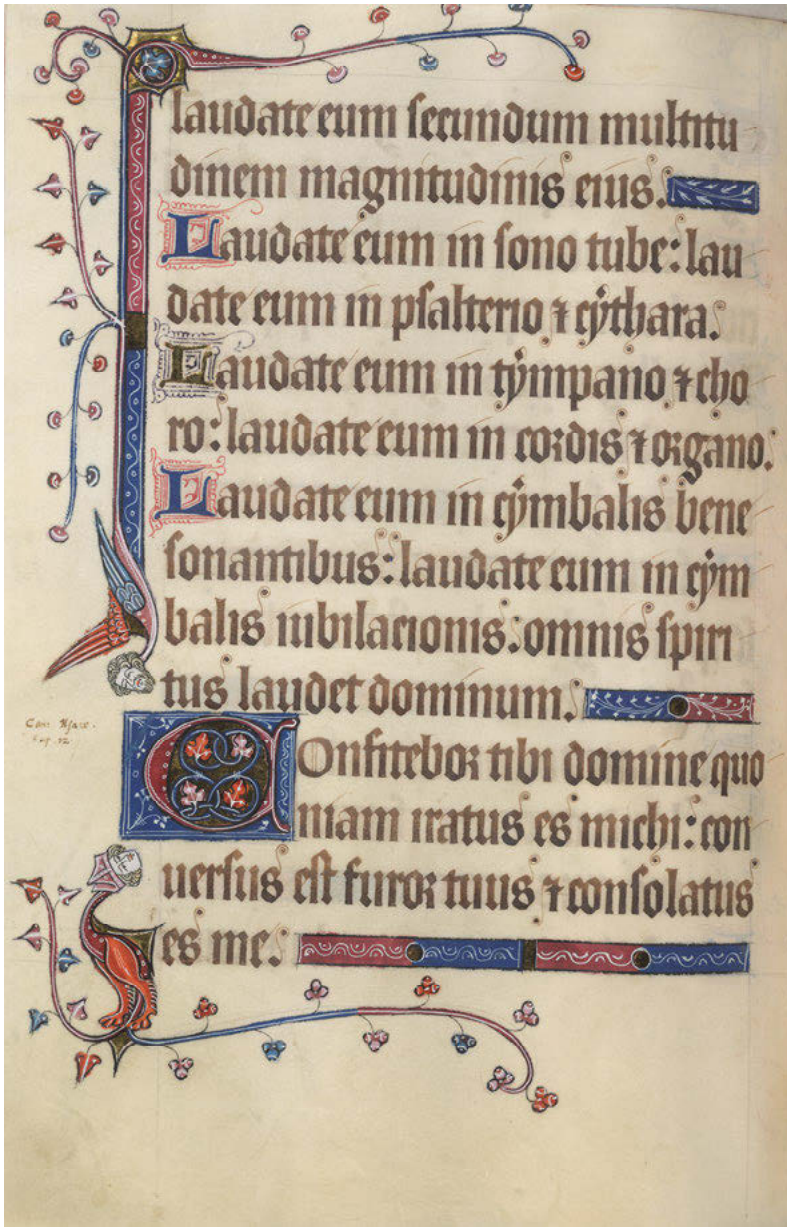 laudate eum secundum multitu
dinem magnitudinis eius.
Laudate eum in sono tube: lau
date eum in psalterio ⁊ cythara.
Laudate eum in tympano ⁊ cho
ro: laudate eum in cordis ⁊ organo.
Laudate eum in cymbalis bene
sonantibus: laudate eum in cym
balis iubilacionis: omnis spiri
tus laudet dominum.
Confitebor tibi domine quo
niam iratus es michi: con
uersus est furor tuus ⁊ consolatus
es me.